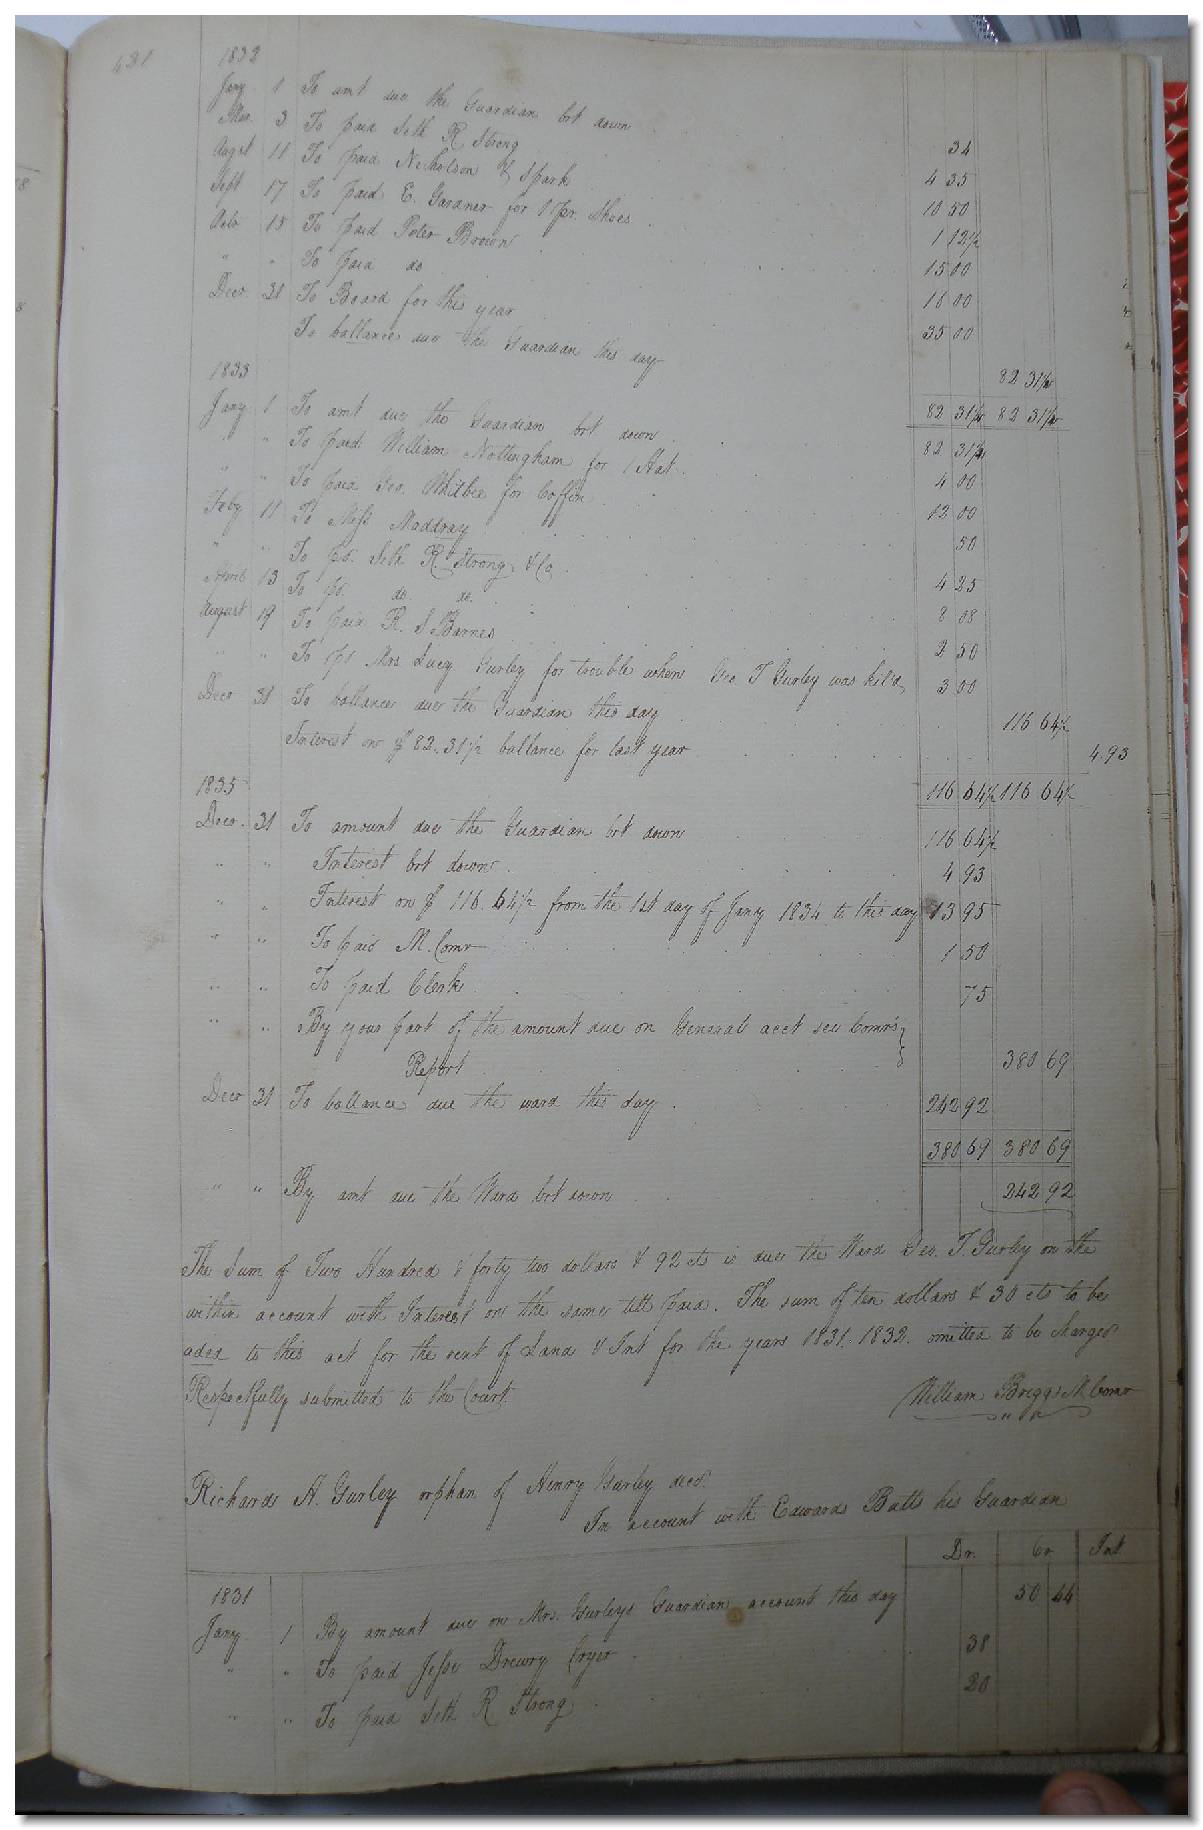 421
1832
Jany 1 To amt due the Guardian brt down 34
Mar. 3 To paid Seth R Strong 4 35
Augst 11 To paid Nicholson & Spark 10 50
Sept 17 To paid E. Gardner for 1 pr. Shoes 1 12½
Octo 15 To paid Peter Brown 15 00
" " To paid do 16 00
Decr 31 To Board for the year 35 00
To ballance due the Guardian this day 82 31½
82 31½ 82 31½
1833
Jany 1 To amt due the Guardian brt down 82 31½
" " To paid William Nottingham for 1 Hat 4 00
" " To paid Geo. Whitbee for Coffin 12 00
Feby 11 To Miss Maddray 50
" " To pd. Seth R. Strong & Co 4 25
April 13 To pd. do. do. 8 08
August 19 To paid R. S Barnes 2 50
" " To pd Mrs Lucy Gurley for trouble when Geo. T Gurley was kil'd 3 00
Decr 31 To ballance due the Guardian this day 116 64½
Interest on $82.31½ ballance for last year 4.93
116 64½ 116 64½
1835
Decr. 31 To amount due the Guardian brt down 116 64½
" " Interest brt down 4 93
" " Interest on $ 116.64½ from the 1st day of Jany 1834 to this day 13 95
" " To paid M. Comr 1 50
" " To paid Clerk 75
" " By your part of the amount due on General acct see Comr's
Report 380 69
Decr 31 To ballance due the ward this day 242 92
380 69 380 69
" " By amt due the Ward brt down 242 92
The Sum of Two Hundred & forty two dollars & 92 cts is due the Ward Geo. T. Gurley on the
within account with Interest on the same till paid. The sum of ten dollars & 30 cts to be
aded to this act for the rent of Land & Int for the years 1831. 1832. omitted to be charged
Respectfully submitted to the Court.
William Briggs M. Comr
Richard A. Gurley orphan of Henry Gurley decd.
In account with Edward Butts his Guardian
Dr. Cr Int.
1831
Jany 1 By amount due on Mrs. Gurleys Guardian account this day 50 44
" " To paid Jesse Drewry Cryer 38
" " To paid Seth R Strong 20